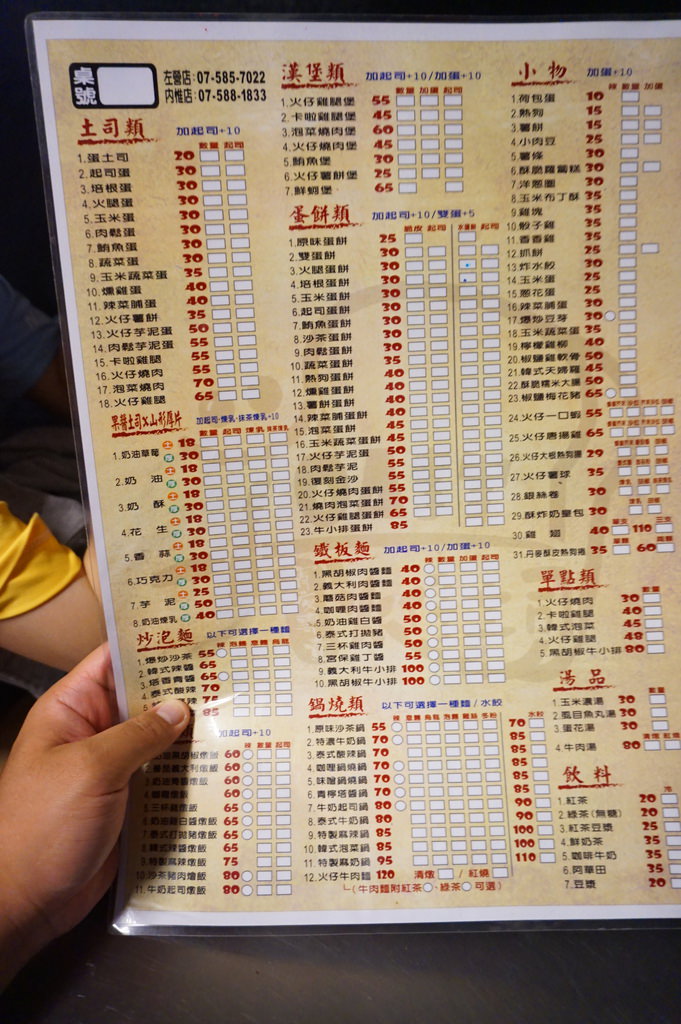 桌號
左營店:07-585-7022
內惟店:07-588-1833
土司類 加起司+10
數量 起司
1.蛋土司 20
2.起司蛋 30
3.培根蛋 30
4.火腿蛋 30
5.玉米蛋 30
6.肉鬆蛋 30
7.鮪魚蛋 30
8.蔬菜蛋 30
9.玉米蔬菜蛋 35
10.燻雞蛋 40
11.辣菜脯蛋 40
12.火仔薯餅 35
13.火仔芋泥蛋 50
14.肉鬆芋泥蛋 55
15.卡啦雞腿 55
16.火仔燒肉 55
17.泡菜燒肉 70
18.火仔雞腿 65
果醬土司X山形厚片 加起司·煉乳·抹茶煉乳+10
數量 起司 煉乳 抹茶煉乳
1.奶油草莓 土 18 厚 30
2.奶油 土 18 厚 30
3.奶酥 土 18 厚 30
4.花生 土 18 厚 30
5.香蒜 土 18 厚 30
6.巧克力 土 18 厚 30
7.芋泥 土 25 厚 50
8.奶油煉乳 厚 40
炒泡麵 以下可選擇一種麵
1.爆炒沙茶 55
2.韓式辣醬 65
3.塔香青醬 65
4.泰式酸辣 70
85
加起司+10
辣 數量 起司
60
2.番茄義大利燉飯 60
60
60
5.三杯雞燉飯 65
6.奶油雞白醬燉飯 65
7.泰式打拋豬燉飯 65
8.韓式辣醬燉飯 65
9.特製麻辣燉飯 75
10.沙茶豬肉燴飯 80
11.牛奶起司燉飯 80
漢堡類 加起司+10/加蛋+10
數量 加蛋 起司
1.火仔雞腿堡 55
2.卡啦雞腿堡 45
3.泡菜燒肉堡 60
4.火仔燒肉堡 45
5.鮪魚堡 30
6.火仔薯餅堡 25
7.鮮蚵堡 65
蛋餅類 加起司+10/雙蛋+5
數量 起司
1.原味蛋餅 25
2.雙蛋餅 30
3.火腿蛋餅 30
4.培根蛋餅 30
5.玉米蛋餅 30
6.起司蛋餅 30
7.鮪魚蛋餅 30
8.沙茶蛋餅 30
9.肉鬆蛋餅 30
10.蔬菜蛋餅 35
11.熱狗蛋餅 40
12.燻雞蛋餅 40
13.薯餅蛋餅 40
14.辣菜脯蛋餅 40
15.泡菜蛋餅 45
16.玉米蔬菜蛋餅 45
17.火仔芋泥蛋 50
18.肉鬆芋泥 55
19.復刻金沙 55
20.火仔燒肉蛋餅 55
21.燒肉泡菜蛋餅 70
22.火仔雞腿蛋餅 65
23.牛小排蛋餅 85
鐵板麵 加起司+10/加蛋+10
辣 數量 加蛋 起司
1.黑胡椒肉醬麵 40
2.義大利肉醬麵 40
3.蘑菇肉醬麵 40
4.咖哩肉醬麵 40
5.奶油雞白醬 50
6.泰式打拋豬 50
7.三杯雞肉醬 50
8.宮保雞丁醬 55
9.義大利牛小排 100
10.黑胡椒牛小排 100
鍋燒類 以下可選擇一種麵/水餃
水餃
1.原味沙茶鍋 55 70
2.特濃牛奶鍋 70 85
3.泰式酸辣鍋 70 85
4.咖哩鍋燒鍋 70 85
5.味噌鍋燒鍋 70 85
6.青檸塔醬鍋 70 85
7.牛奶起司鍋 80 90
8.泰式牛奶鍋 80 90
9.特製麻辣鍋 85 100
10.韓式泡菜鍋 85 100
11.特製麻奶鍋 95 110
12.火仔牛肉麵 120 清燉 / 紅燒
└(牛肉麵附紅茶、綠茶 可選)
小物 加蛋+10
辣 數量 加蛋
1.荷包蛋 10
2.熱狗 15
3.薯餅 15
4.小肉豆 25
5.薯條 30
6.酥脆蘿蔔糕 30
7.洋蔥圈 30
8.玉米布丁酥 35
9.雞塊 35
10.骰子雞 35
11.香香雞 35
12.抓餅 25
13.炸水餃 30
14.玉米蛋 25
15.蔥花蛋 25
16.辣菜脯蛋 30
17.爆炒豆芽 30
18.玉米蔬菜蛋 35
19.檸檬雞柳 40
20.椒鹽雞軟骨 50
21.韓式天婦羅 45
22.酥脆糯米大腸 50
23.椒鹽梅花豬 65
24.火仔一口蝦 55
25.火仔唐揚雞 65
26.火仔大根熱狗腸 29
27.火仔薯球 35
28.銀絲卷 30
29.酥炸奶皇包 30
30.雞翅 40 110
31.丹麥酥皮熱狗捲 35 60
單點類
數量
1.火仔燒肉 30
2.卡啦雞腿 40
3.韓式泡菜 45
4.火仔雞腿 48
5.黑胡椒牛小排 80
湯品
數量
1.玉米濃湯 30
2.虱目魚丸湯 30
3.蛋花湯 30
清燉 紅燒
4.牛肉湯 80
飲料
冷
1.紅茶 20
2.綠茶(無糖) 20
3.紅茶豆漿 25
4.鮮奶茶 35
5.咖啡牛奶 35
6.阿華田 35
7.豆漿 20